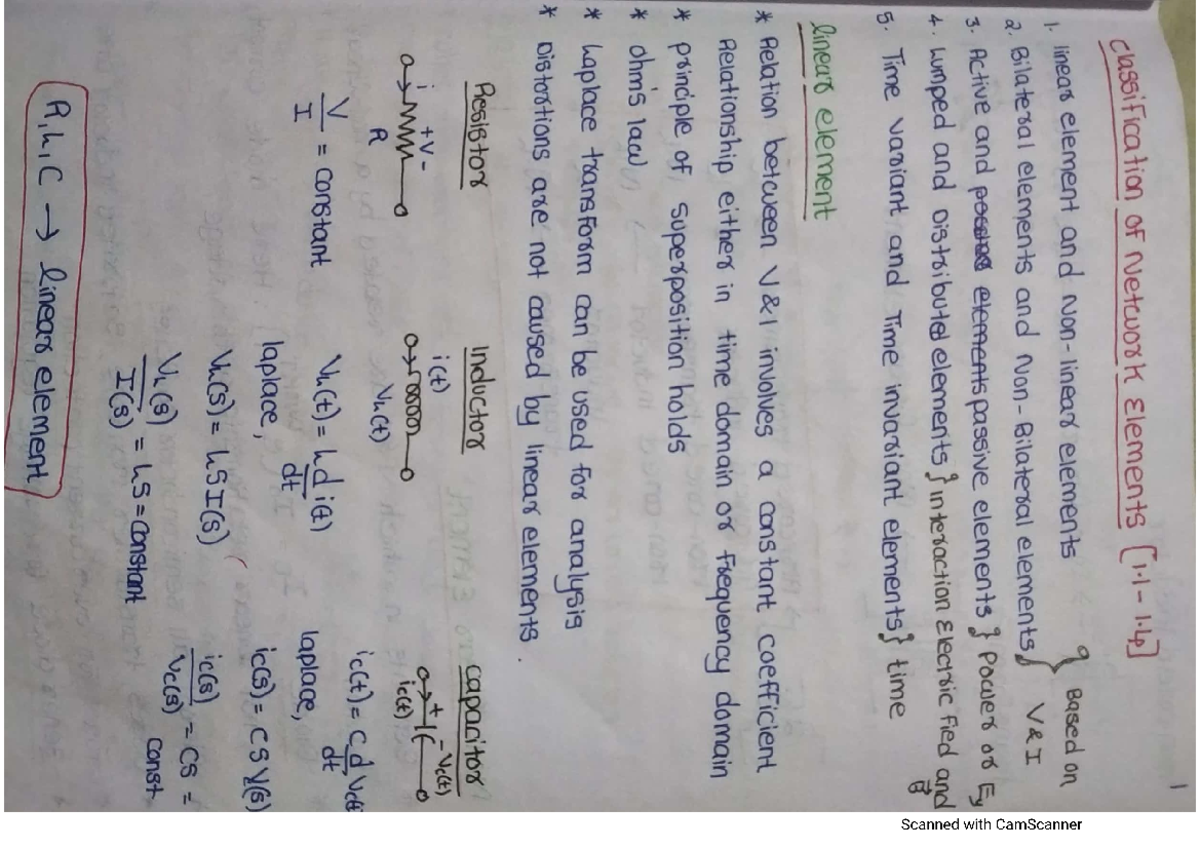 1
Classification of Network Elements [1.1 - 1.4]
1. linear element and Non-linear elements } Based on
2. Bilateral elements and Non-Bilateral elements } V & I
3. Active and passive elements } Power or Ey
4. Lumped and Distributed elements } interaction Electric fied and B
5. Time variant and Time invariant elements } time
linear element
* Relation between V & I involves a constant coefficient
Relationship either in time domain or frequency domain
* principle of superposition holds
* ohm's law
* Laplace transform can be used for analysis
* Distortions are not caused by linear elements.
Resistor
i + V -
R
V/I = constant
Inductor
i(t)
VL(t)
VL(t) = L d/dt i(t)
laplace,
VL(s) = LS I(s)
VL(s)/I(s) = LS = constant
capacitor
+ - Vc(t)
ic(t)
ic(t) = C d/dt Vc(t)
laplace,
ic(s) = CS V(s)
ic(s)/Vc(s) = CS =
const
R, L, C → linear element
Scanned with CamScanner